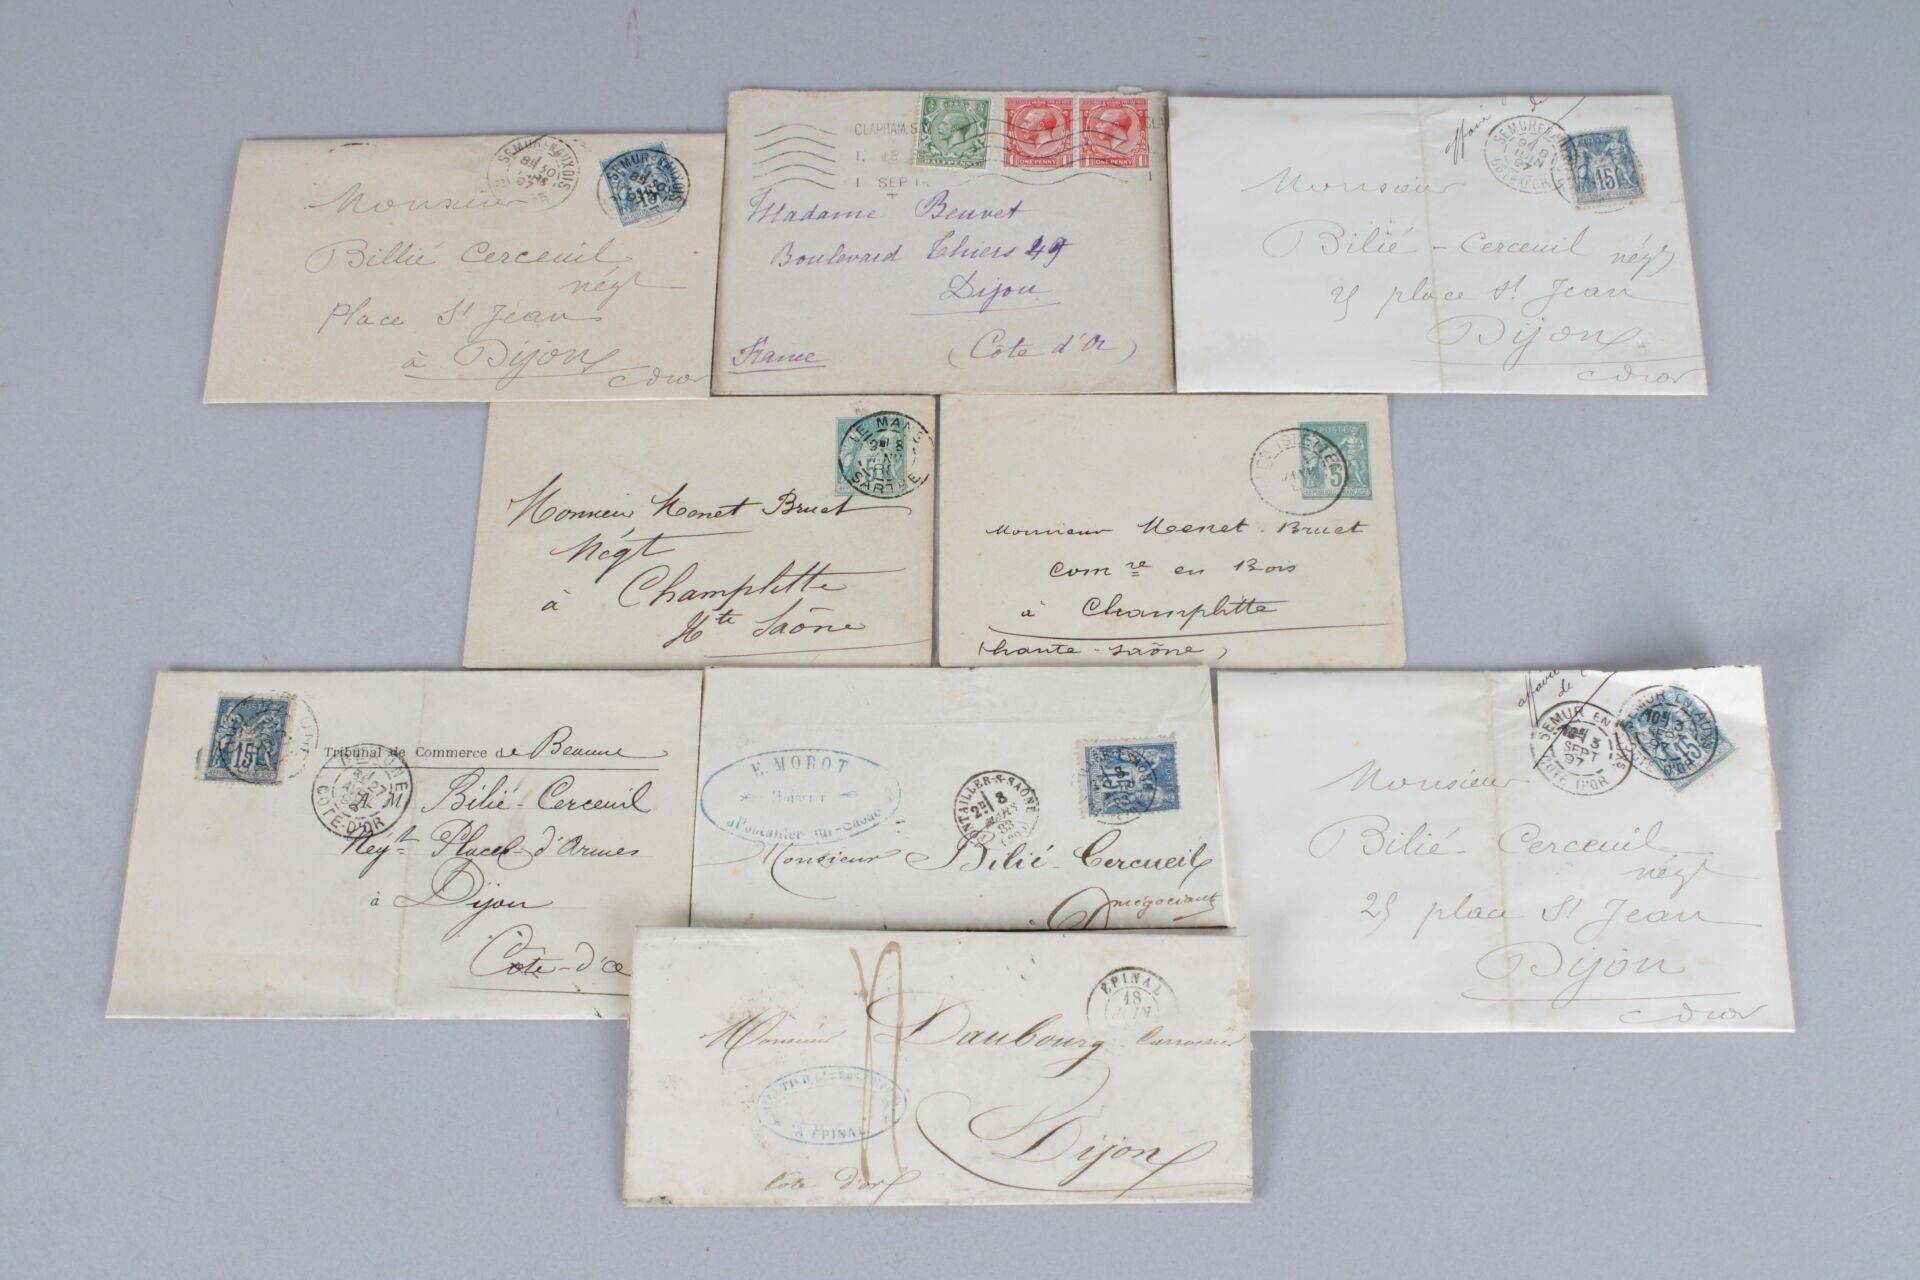 SEMUR EN AUXOIS
SEMUR EN AUXOIS
15
Monsieur
Billié Cerceuil
négt
Place St Jean
à Dijon
Cdor
CLAPHAM. S.W
1. 15
1 SEP
HALFPENNY
ONE PENNY
ONE PENNY
Madame Beuvet
Boulevard Thiers 49
Dijon
France (Côte d'Or)
affaire de
SEMUR EN AUXOIS
8
JUIN
97
COTE D'OR
15
Monsieur
Bilié-Cerceuil négt
25 place St Jean
Dijon
Cdor
LE MANS
SARTHE
5
Monsieur Menet Bruet
Négt
à Champlitte
Hte Saône
LES ISLETTES
POSTES
5
REPUBLIQUE FRANÇAISE
Monsieur Menet-Bruet
Comre en Bois
à Champlitte
(haute-Saône)
POSTES
15
Tribunal de Commerce de Beaune
COTE-D'OR
A M Bilié-Cerceuil
Negt Place d'Armes
à Dijon
Côte-d'Or
E. MOROT
Huissier
à Pontailler-sur-Saône
PONTAILLER-S-SAÔNE
8
MARS
15
Monsieur Bilié-Cercueil
négociant
affaire de
SEMUR EN AUXOIS
3
SEPT
97
COTE D'OR
SEMUR EN AUXOIS
15
Monsieur
Bilié-Cerceuil
négt
25 place St Jean
Dijon
Cdor
EPINAL
18
JUIN
Monsieur Daubourg Carrossier
A EPINAL
Dijon
Côte d'or